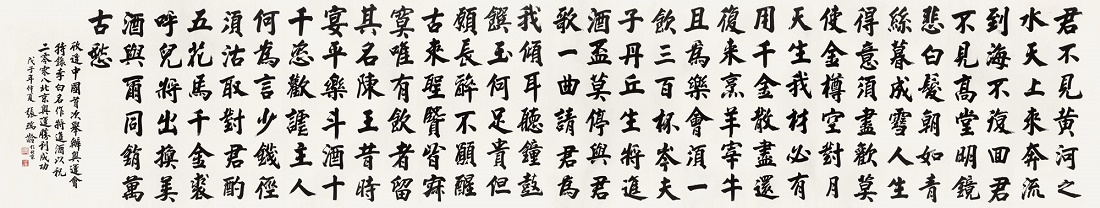 君不見黃河之
水天上來奔流
到海不復回君
不見高堂明鏡
悲白髮朝如青
絲暮成雪人生
得意須盡歡莫
使金樽空對月
天生我材必有
用千金散盡還
復來烹羊宰牛
且為樂會須一
飲三百杯岑夫
子丹丘生將進
酒盃莫停與君
歌一曲請君為
我傾耳聽鐘鼓
饌玉何足貴但
願長醉不願醒
古來聖賢皆寂
寞唯有飲者留
其名陳王昔時
宴平樂斗酒十
千恣歡謔主人
何為言少錢徑
須沽取對君酌
五花馬千金裘
呼兒將出換美
酒與爾同銷萬
古愁
欣逢中國首次舉辦奧運會
特錄李白名作將進酒以祝
二零零八北京奧運勝利成功
戊子年仲夏張瑞齡